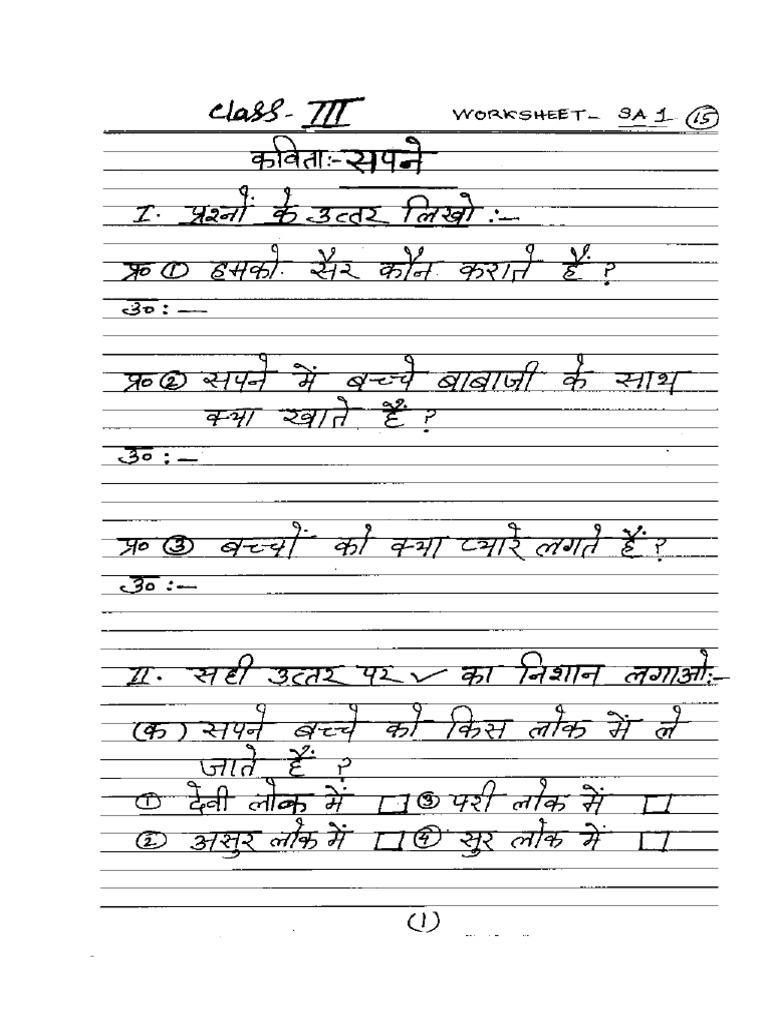 Class - III WORKSHEET - SA 1 15
कविता:- सपने
I. प्रश्नों के उत्तर लिखो :-
प्र० ① हमको सैर कौन कराते हैं ?
उ० : -
प्र० ② सपने में बच्चे बाबाजी के साथ
क्या खाते हैं ?
उ० : -
प्र० ③ बच्चों को क्या प्यारे लगते हैं ?
उ० : -
II. सही उत्तर पर ✓ का निशान लगाओ:-
(क) सपने बच्चे को किस लोक में ले
जाते हैं ?
① देवी लोक में □ ③ परी लोक में □
② असुर लोक में □ ④ सुर लोक में □
(1)